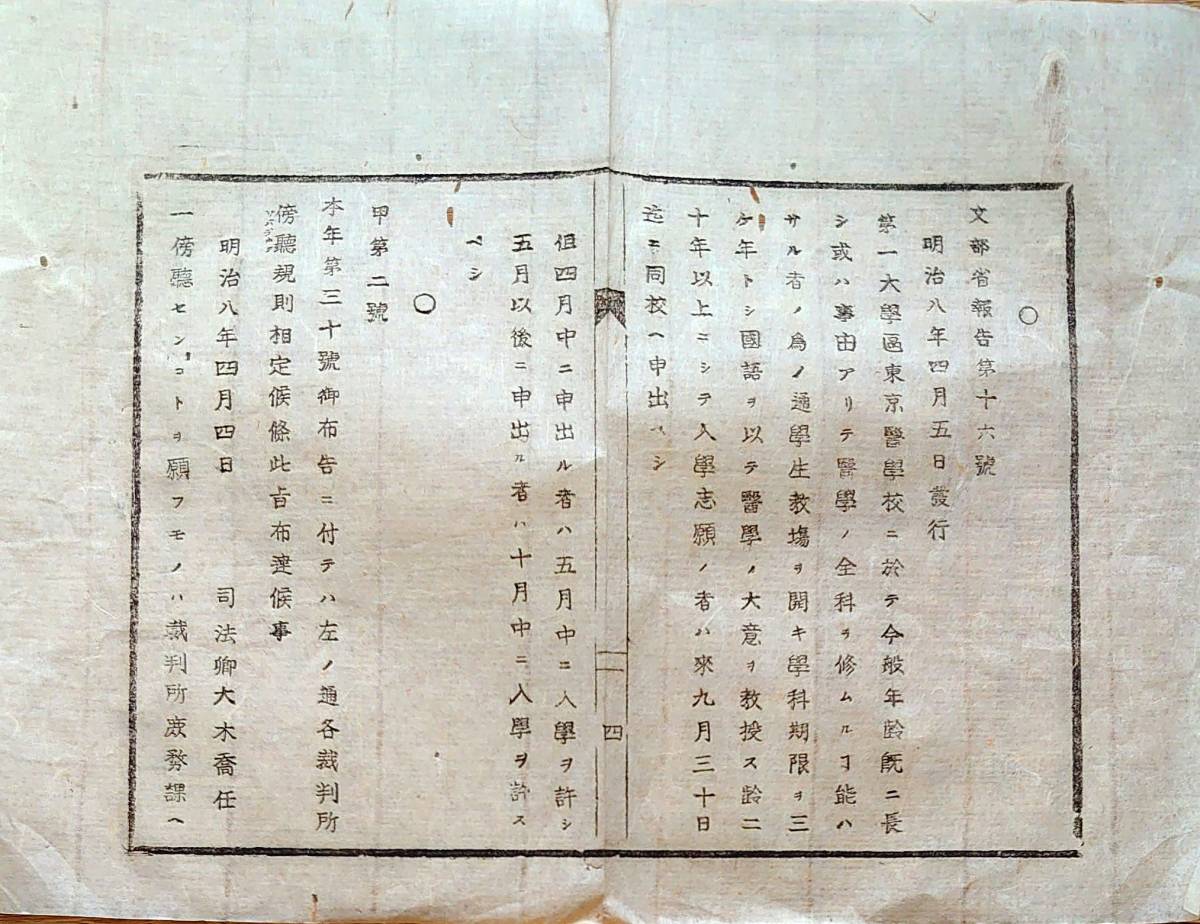 ○
文部省報告第十六號
明治八年四月五日發行
第一大學區東京醫學校ニ於テ今般年齡既ニ長
シ或ハ事由アリテ醫學ノ全科ヲ修ムルヿ能ハ
サル者ノ爲メ通學生教塲ヲ開キ學科期限ヲ三
ケ年トシ國語ヲ以テ醫學ノ大意ヲ教授ス齡二
十年以上ニシテ入學志願ノ者ハ來九月三十日
迄ニ同校ヘ申出ヘシ
四
但四月中ニ申出ル者ハ五月中ニ入學ヲ許シ
五月以後ニ申出ル者ハ十月中ニ入學ヲ許ス
ベシ
○
甲第二號
本年第三十號御布告ニ付テハ左ノ通各裁判所
傍聽規則相定候條此旨布達候事
明治八年四月四日 司法卿大木喬任
一傍聽センコトヲ願フモノハ裁判所庶務課ヘ